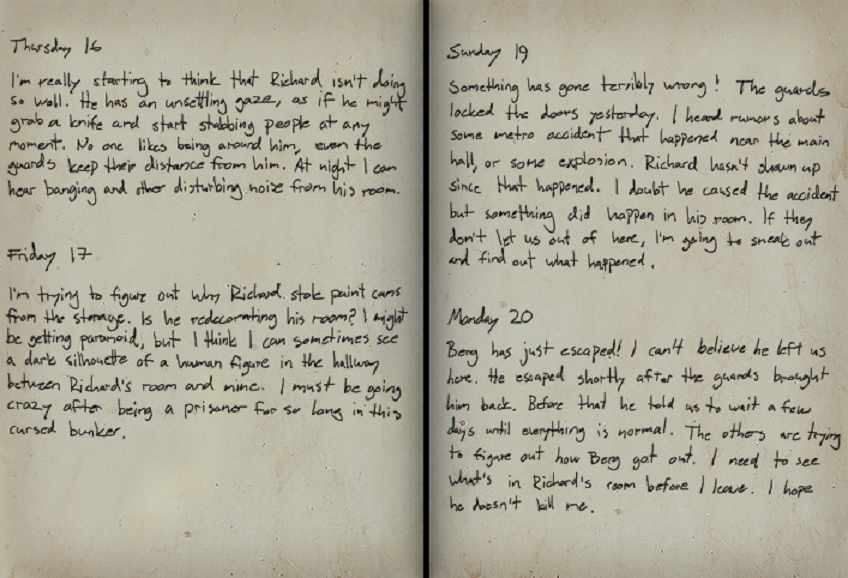 Thursday 16
I'm really starting to think that Richard isn't doing
so well. He has an unsettling gaze, as if he might
grab a knife and start stabbing people at any
moment. No one likes being around him, even the
guards keep their distance from him. At night I can
hear banging and other disturbing noise from his room.
Friday 17
I'm trying to figure out why Richard stole paint cans
from the storage. Is he redecorating his room? I might
be getting paranoid, but I think I can sometimes see
a dark silhouette of a human figure in the hallway
between Richard's room and mine. I must be going
crazy after being a prisoner for so long in this
cursed bunker.
Sunday 19
Something has gone terribly wrong! The guards
locked the doors yesterday. I heard rumors about
some metro accident that happened near the main
hall, or some explosion. Richard hasn't shown up
since that happened. I doubt he caused the accident
but something did happen in his room. If they
don't let us out of here, I'm going to sneak out
and find out what happened.
Monday 20
Berg has just escaped! I can't believe he left us
here. He escaped shortly after the guards brought
him back. Before that he told us to wait a few
days until everything is normal. The others are trying
to figure out how Berg got out. I need to see
what's in Richard's room before I leave. I hope
he doesn't kill me.